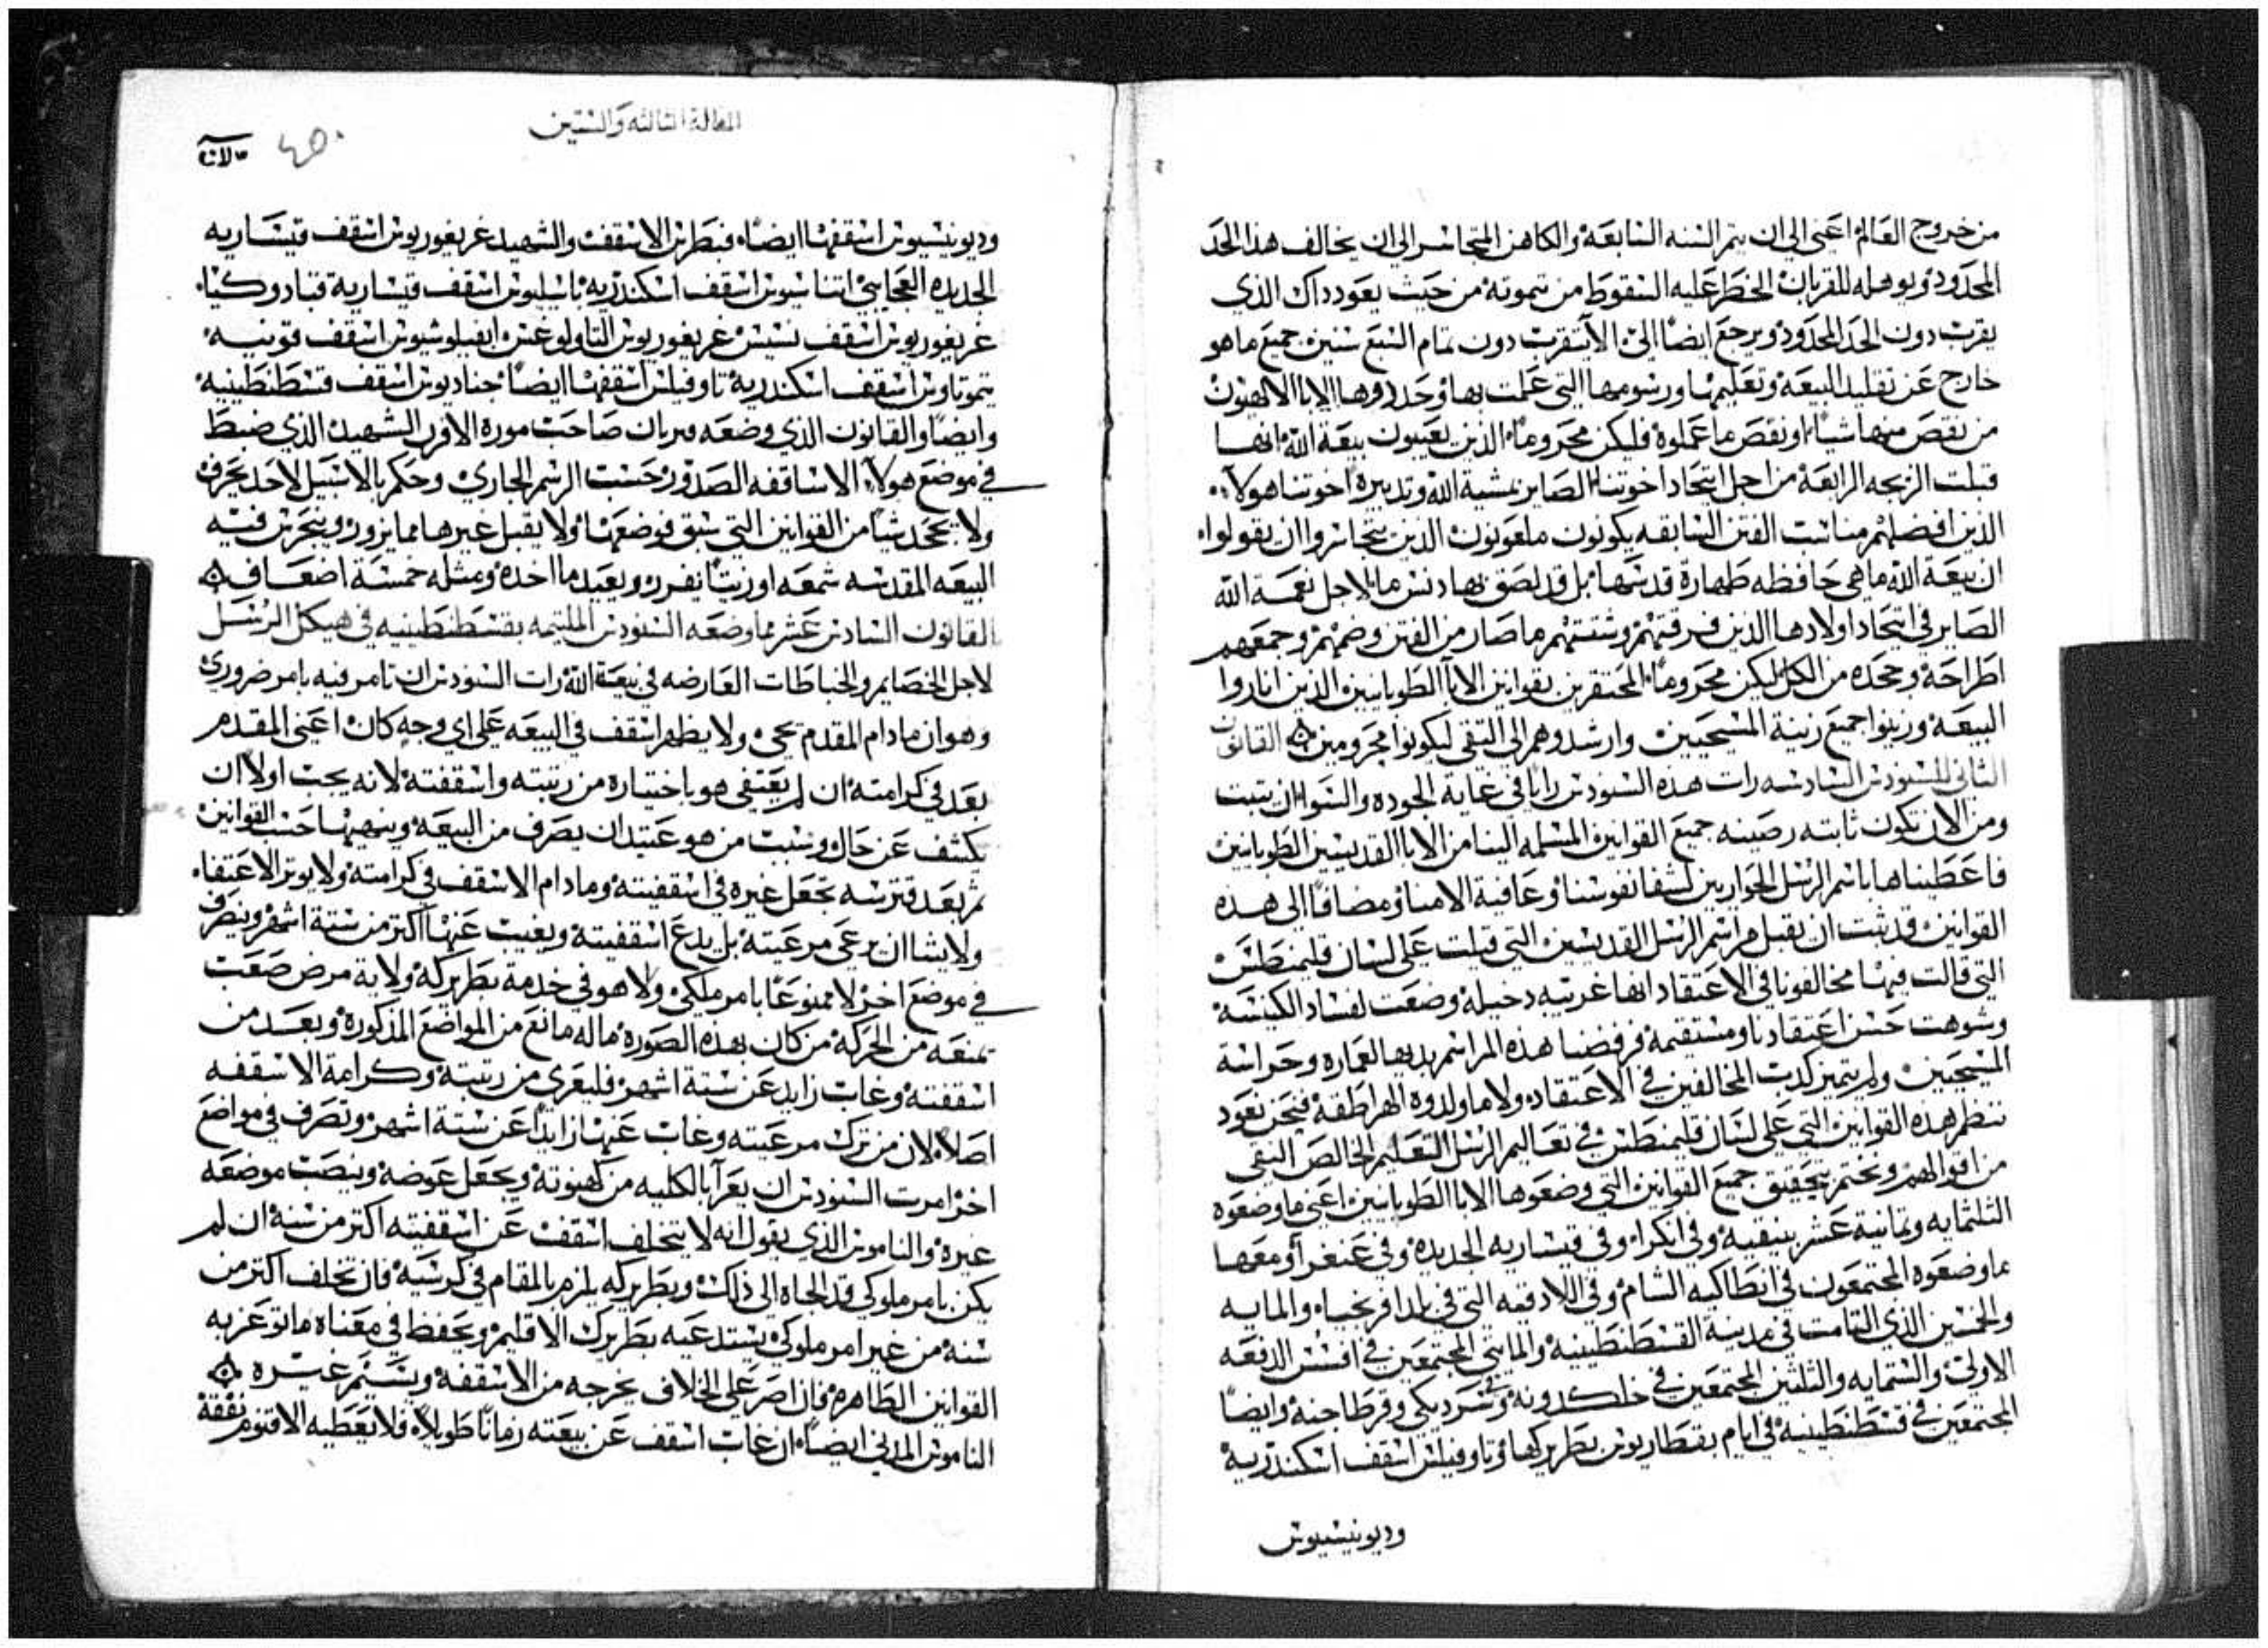 من خروج العالم اعني الى ان يتم السنه السابعه والكاهن المتجاسر الى ان يخالف هذا الحد
المحدود ويوهله للقربان الخطر عليه السقوط من تيموته من حيث يعود داك الذي
يقرب دون الحد المحدود ويرجع ايضًا الى الا يتقرب دون تمام السبع سنين جميع ما هو
خارج عن تقليد البيعه وتعليمها ورسومها التي عملت بها وحددوها الابا الالاهيون
من نقص منها شيًا او نقص ما عملوه فليكن محرومًا الذين يعيبون بيعة الله انها
قبلت الزيجه الرابعة من اجل ايتحاد اخوتنا الصاير بمشية الله وتدبيره اخوتنا هولآء
الذين افصلهم مناسبت الفتن السابقه يكونون ملعونون الذين يتجاسروا ان يقولوا
ان بيعة الله ما هي حافظه طهارة قدسها بل قد لصق بها دنس ما لاجل نعمة الله
الصاير في اتحاد اولادها الذين فرقتهم وشتتهم ما صار من الفتن وضمهم وجمعهم
اطراحه وجحده من الكل ليكن محرومًا المحتقرين بقوانين الابا الطوبانيين الذين اناروا
البيعة وزينوا جميع زينة المسيحيين وارشدوهم الى التقى ليكونوا محرومين القانون
الثاني للسنودس السادسه رات هذه السنودس رايا في غاية الجوده والسوا ان يتبت
ومن الان تكون ثابته رصينه جميع القوانين المسلمه الينا من الابا القديسين الطوبانين
فاعطيناها باسم الرسل الحواريين لشفا نفوسنا وعافية الامنا ومضافًا الى هذه
القوانين قد يثبت ان يقبل مراسم الرسل القديسين التي قيلت على لسان قليمنطس
التي قالت فيها مخالفونا في الاعتقاد انها غريبه دخيله وضعت لفساد الكنيسة
وشوهت حسن اعتقادنا ومستقيمه فرفضنا هذه المراسم بديها لعماره وحراسة
المسيحيين ولم يتميز كدب المخالفين في الاعتقاد ولا ما ولدوه الهراطقة فنحن نعود
ننظم هذه القوانين التي على لسان قليمنطس في تعاليم الرسل التعليم الخالص النقي
من اقوالهم ونختم بتحقيق جميع القوانين التي وضعوها الابا الطوبانيين اعني ما وضعوه
التلتمايه وتمانية عشر بنيقيه وفي انكرا وفي قيساريه الجديده وفي غنغرا ومعها
ما وضعوه المجتمعون في انطاكيه الشام وفي اللادقيه التي في بلد افريجيا والمايه
والخمسين الذي التامت في مدينة القسطنطينيه والمايتي المجتمعين في افسس الدفعه
الاولى والستمايه والتلتين المجتمعين في خلكدونه وفي سرديكي وقرطاجنة وايضًا
المجتمعين في قسطنطينيه في ايام بقطاريوس بطريركها وتاوفيلس اسقف اسكندرية
وديونيسيوس
المقالة الثالثه والستين
٤٥٠
وديونيسيوس اسقفها ايضًا فبطرس الاسقف والشهيد غريغوريوس اسقف قيساريه
الجديده العجايبي اتناسيوس اسقف اسكندريه باسيليوس اسقف قيسارية قبادوكيا
غريغوريوس اسقف نسيس غريغوريوس التاولوغس انفيلوشيوس اسقف قونيه
تيموتاوس اسقف اسكندرية تاوفيلس اسقفها ايضًا جناديوس اسقف قسطنطينيه
وايضًا والقانون الذي وضعه قبريان صاحب موره الافرن الشهيد الذي ضبط
في موضع هولآء الاساقفه الصدور حسب الرسم الجاري وحكم بالا سبيل لاحد يحرف
ولا يجحد شيًا من القوانين التي سبق فوضعها ولا يقبل غيرها مما يزور ويتجرى فيه
البيعه المقدسه شمعه او زيتًا نفرده ويعيد ما اخده ومثله خمسة اضعاف
القانون السادس عشر مما وضعه السنودس الملتيمه بقسطنطينيه في هيكل الرسل
لاجل الخصايم والخباطات العارضه في بيعة الله رات السنودس ان تامر فيه بامر ضروري
وهو ان ما دام المقدم حي ولا يظهر اسقف في البيعه على اي وجه كان اعني المقدم
بعد في كرامته ان لم يعتفي هو باختياره من رتبته واسقفته لانه يجب اولًا ان
يكشف عن حال وسبب من هو عتيد ان يصرف من البيعة وينهيها حسب القوانين
ثم بعد قترسه تجعل غيره في اسقفيته وما دام الاسقف في كرامته ولا يوتر الاعتفا
ولا يشا ان يرعى مرعيته بل يدع اسقفيته ويغيب عنها اكتر من ستة اشهر وينصرف
في موضع اخر لا ممنوعًا بامر ملكي ولا هو في خدمة بطريركه ولا به مرض صعب
تمنعه من الحركة من كان بهذه الصورة ما له مانع من المواضع المذكورة وبعد من
اسقفته وغاب زايد عن ستة اشهر فليعرى من رتبته وكرامة الاسقفه
اصلًا لان من ترك مرعيته وغاب عنها زايدًا عن ستة اشهر وتصرف في مواضع
اخر امرت السنودس ان يعرآ بالكليه من كهنوته ويجعل عوضه وينصب موضعه
غيره والناموس الذي يقول انه لا يتخلف اسقف عن اسقفيته اكتر من سنة ان لم
يكن بامر ملوكي قد الجاه الى ذلك وبطريركه يلزم بالمقام في كرسيه فان تخلف اكتر من
سنه من غير امر ملوكي يستدعيه بطريرك الاقليم ويحفظ في معناه ما توعز به
القوانين الطاهره فان اصر على الخلاف يخرجه من الاسقفة ويتسم غيره
الناموس المدني ايضًا ان غاب اسقف عن بيعته زمانًا طويلًا فلا يعطيه الاقنوم نفقة